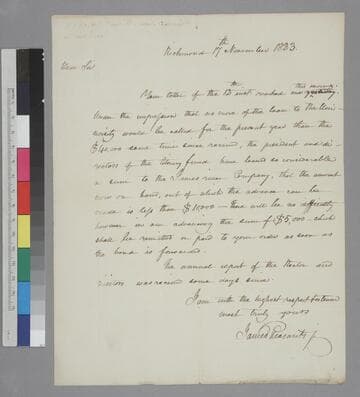 Richmond 17th November 1833.
Dear Sir
Your letter of the 15th inst. reached me yesterday this morning.
Under the impression that no more of the loan to the Uni-
versity would be called for the present year than the
some time since the president and di-
rectors of the literary fund have loaned so considerable
a sum to the James river Company, that the amount
now on hand, out of which the advance can be
made is less than $ there will be no difficulty
however in our advancing the sum of $5,000 which
shall be remitted or paid to your order as soon as
the bond is forwarded.
The annual report of the Rector and
Visitors was received some days since
I am with the highest respect
most truly yours
James